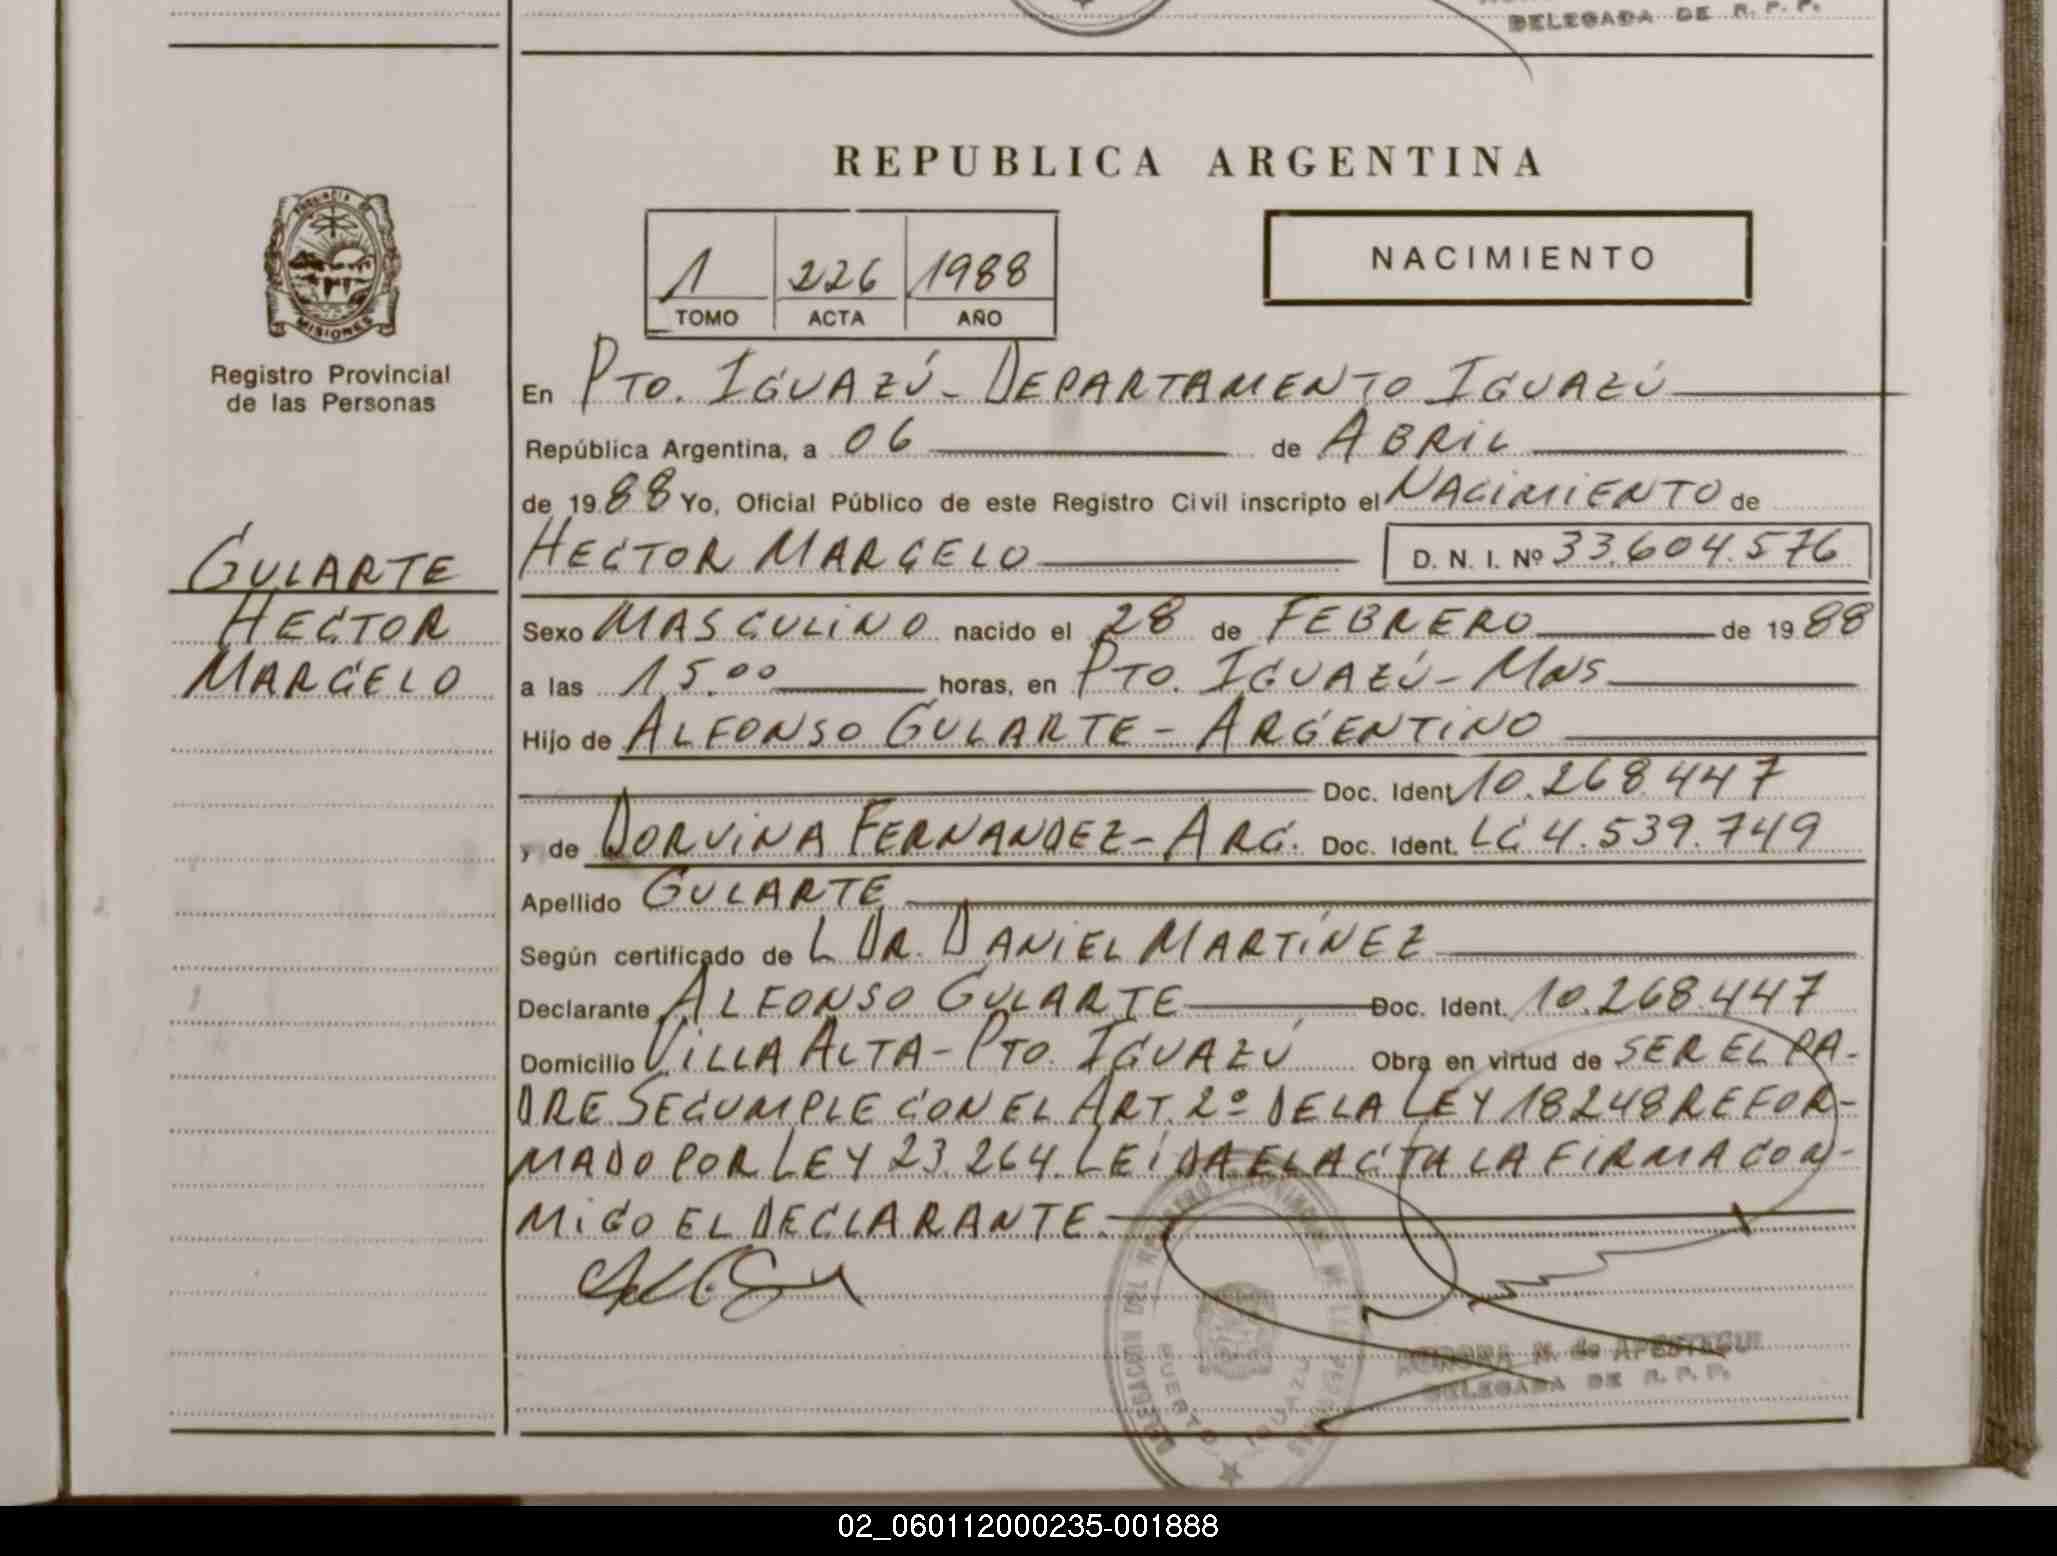 DELEGADA DE R. P. P.
REPUBLICA ARGENTINA
1 226 1988
TOMO ACTA AÑO
NACIMIENTO
MISIONES
Registro Provincial
de las Personas
GULARTE
HECTOR
MARCELO
En PTO. IGUAZÚ - DEPARTAMENTO IGUAZÚ
República Argentina, a 06 de ABRIL
de 1988 Yo, Oficial Público de este Registro Civil inscripto el NACIMIENTO de
HECTOR MARCELO D. N. I. Nº 33.604.576
Sexo MASCULINO nacido el 28 de FEBRERO de 1988
a las 15.00 horas, en PTO. IGUAZÚ - MNS
Hijo de ALFONSO GULARTE - ARGENTINO
Doc. Ident. 10.268.447
y de DORVINA FERNANDEZ - ARG. Doc. Ident. LC 4.539.749
Apellido GULARTE
Según certificado de L DR. DANIEL MARTÍNEZ
Declarante ALFONSO GULARTE Doc. Ident. 10.268.447
Domicilio VILLA ALTA - PTO. IGUAZÚ Obra en virtud de SER EL PA-
DRE SE CUMPLE CON EL ART. 2º DE LA LEY 18248 REFOR-
MADO POR LEY 23.264. LEÍDA EL ACTA LA FIRMA CON-
MIGO EL DECLARANTE.
DELEGACION DEL REGISTRO PROVINCIAL DE LAS PERSONAS
PUERTO IGUAZU
AURORA N. de APESTEGUI
DELEGADA DE R. P. P.
02_060112000235-001888